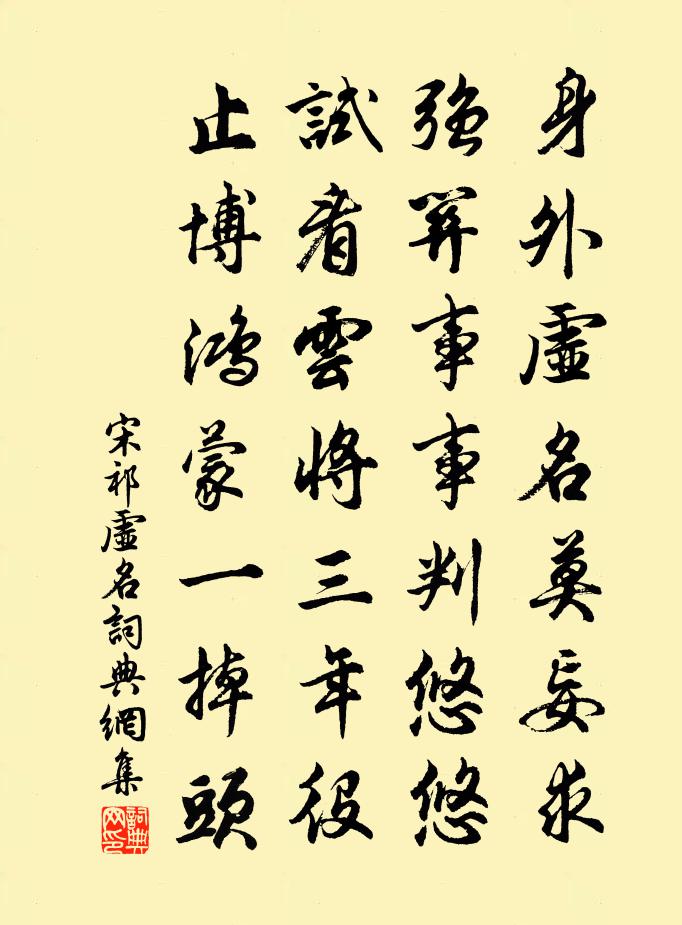 身外虛名莫妄求
強事事判悠悠
試看雲將三年役
止博鴻蒙一掉頭
宋祁虛名詞典網集
詞典
网印